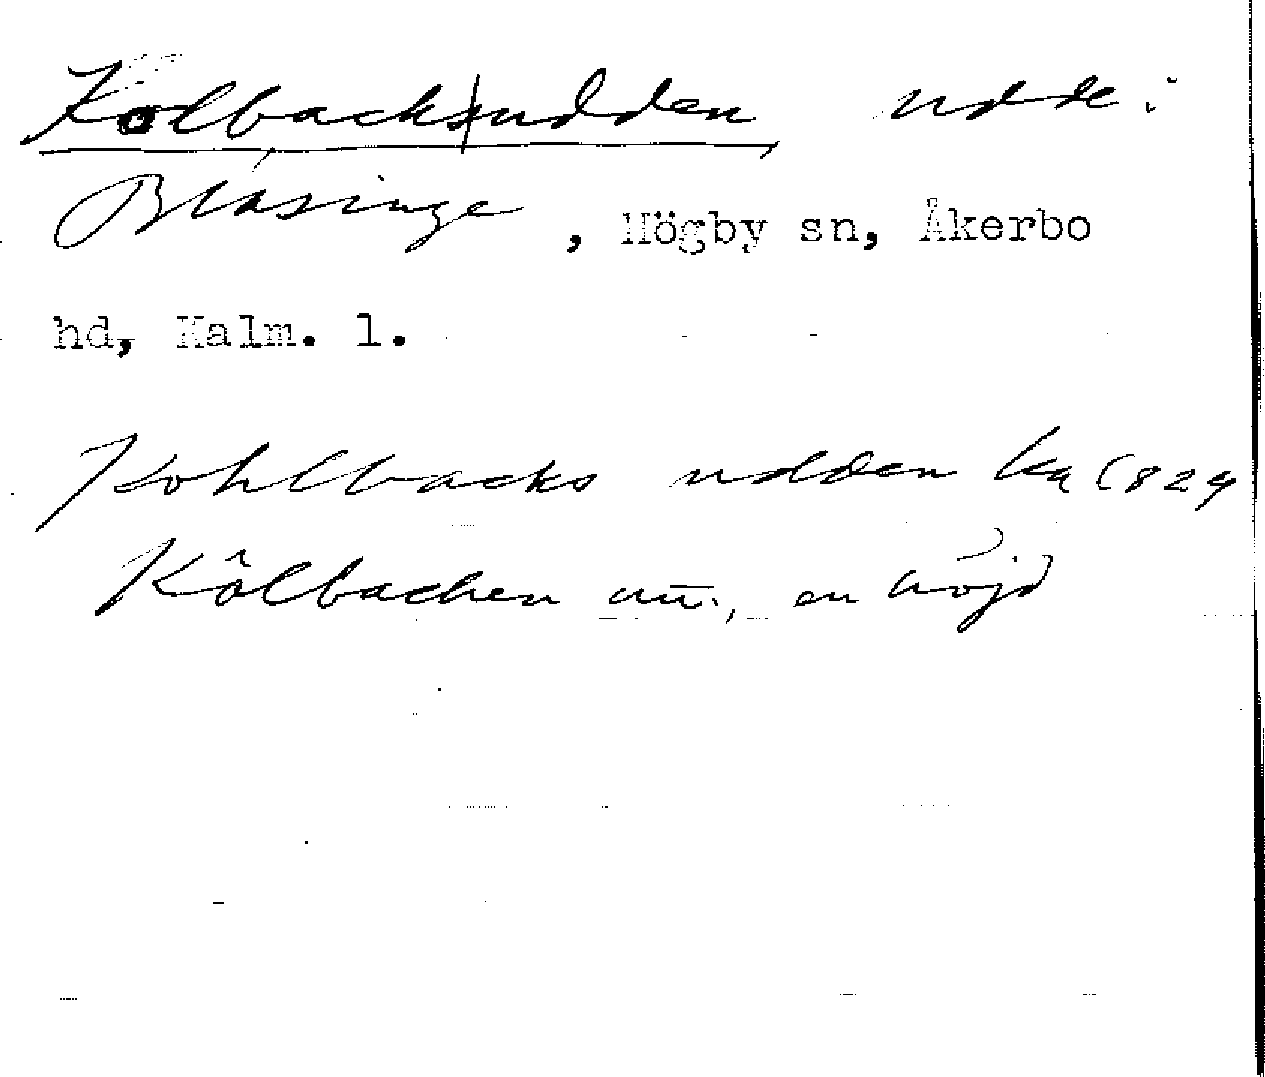 Kolbacks|udden, udde i
Bläsinge, Högby sn, Åkerbo
hd, Kalm. l.
Kohlbacks udden ka 1829
Kôlbacken un., en höjd